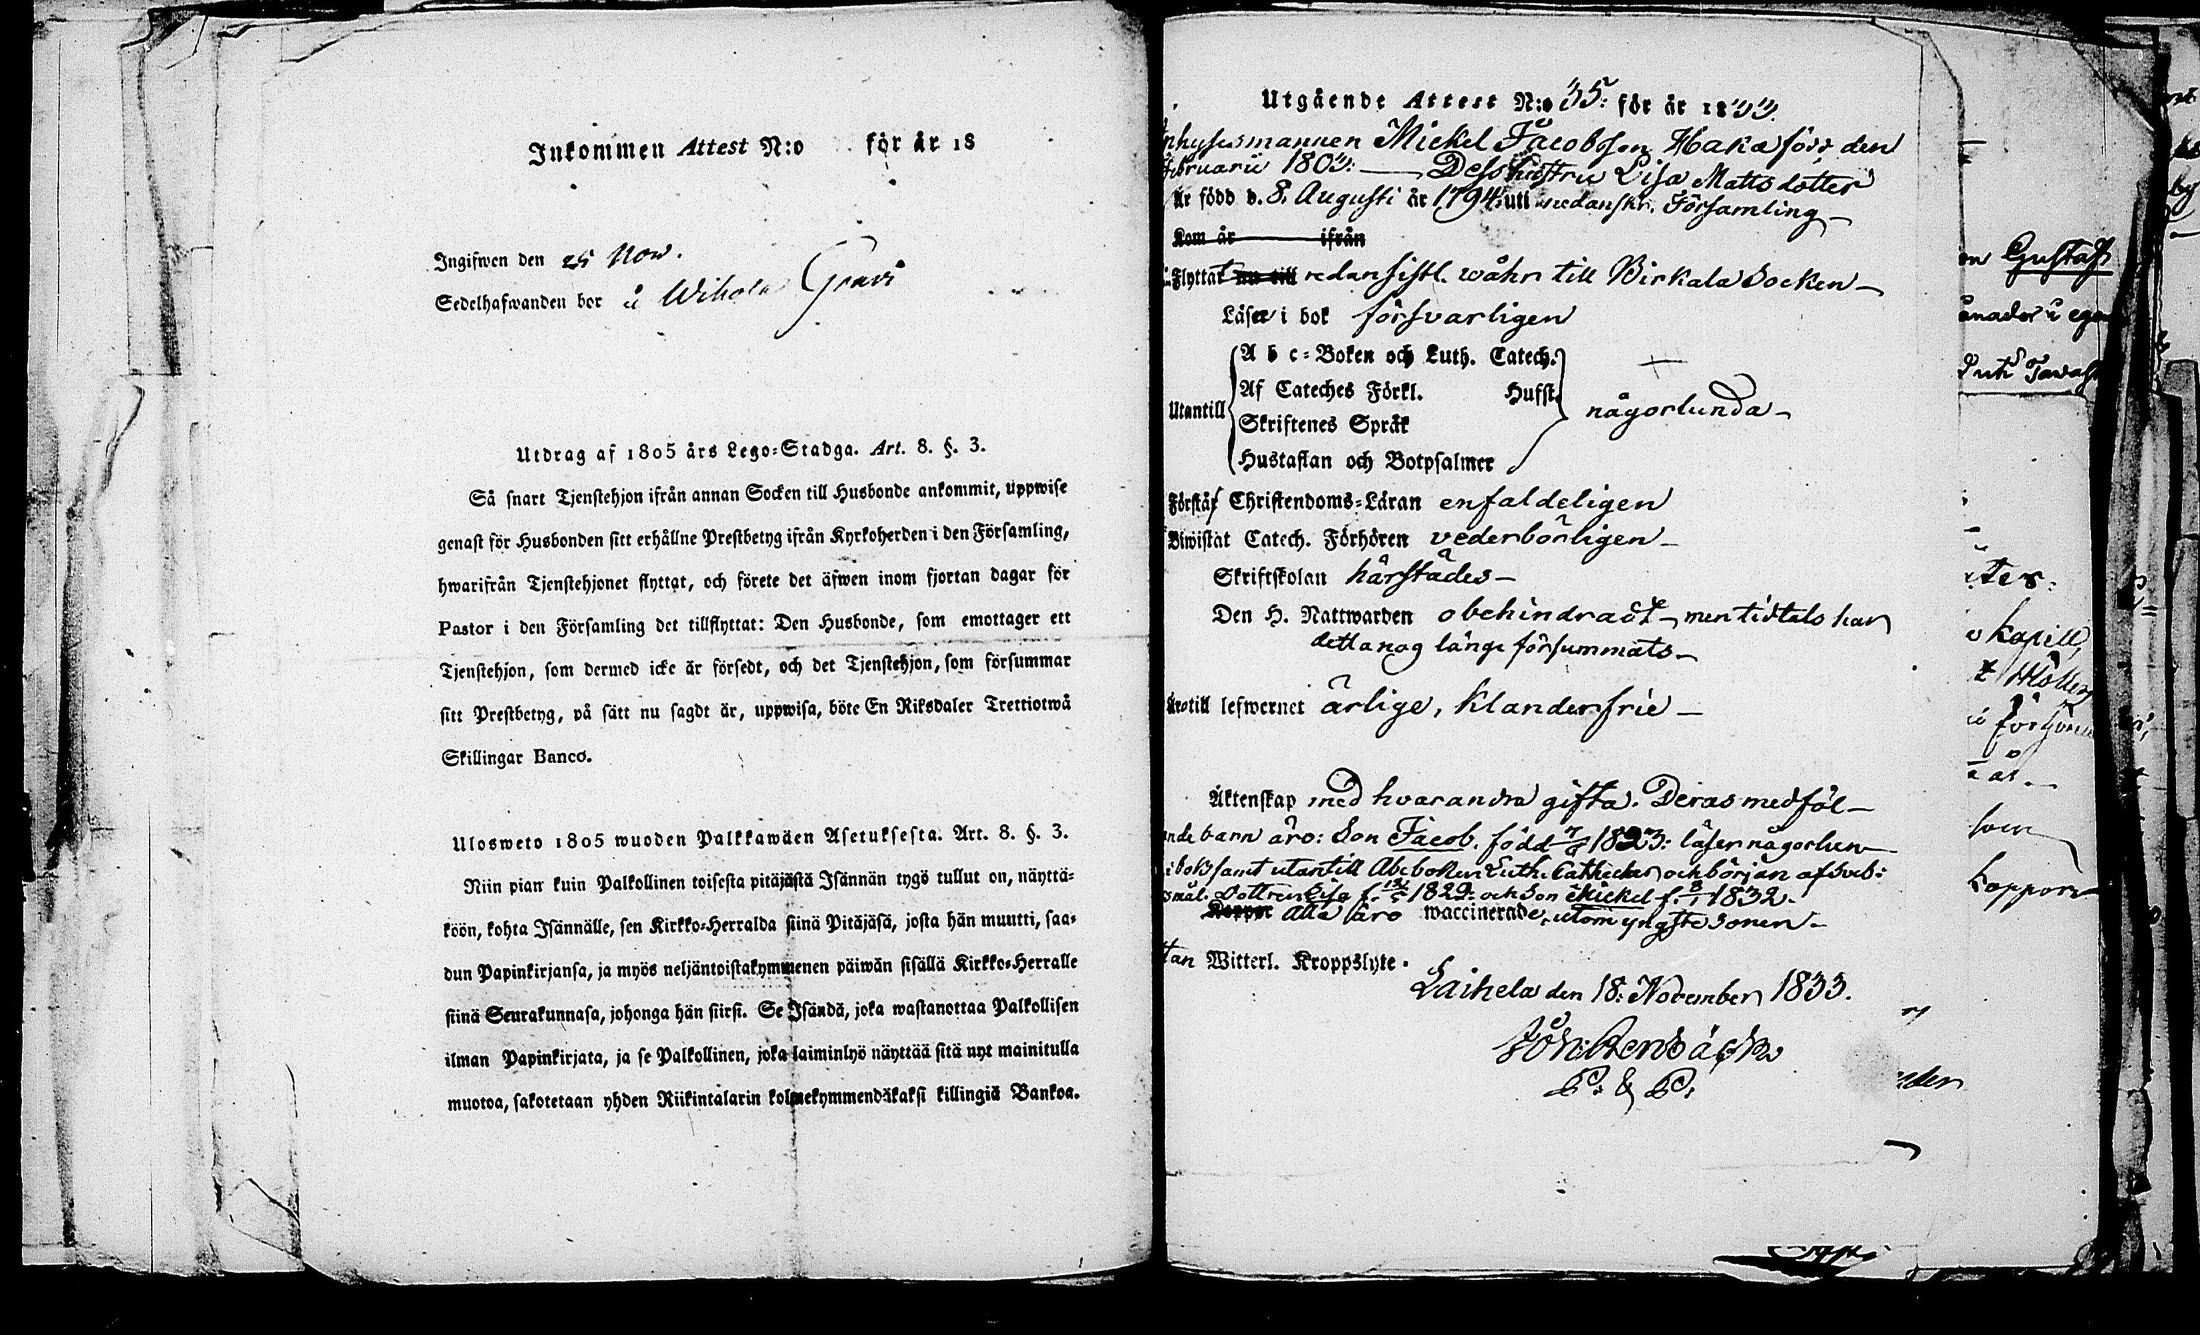 Inkommen Attest N:o för år 18
Ingifwen den 25 Now.
Sedelhafwanden bor å Wihola Grani
Utdrag af 1805 års Lego-Stadga. Art. 8. §. 3.
Så snart Tjenstehjon ifrån annan Socken till Husbonde ankommit, uppwise
genast för Husbonden sitt erhållne Prestbetyg ifrån Kyrkoherden i den Församling,
hwarifrån Tjenstehjonet flyttat, och förete det äfwen inom fjortan dagar för
Pastor i den Församling det tillflyttat: Den Husbonde, som emottager ett
Tjenstehjon, som dermed icke är försedt, och det Tjenstehjon, som försummar
sitt Prestbetyg, på sätt nu sagdt är, uppwisa, böte En Riksdaler Trettiotwå
Skillingar Banco.
Ulosweto 1805 wuoden Palkkawäen Asetuksesta. Art. 8. §. 3.
Niin pian kuin Palkollinen toisesta pitäjästä Isännän tygö tullut on, näyttä-
köön, kohta Isännälle, sen Kirkko-Herralda siinä Pitäjäsä, josta hän muutti, saa-
dun Papinkirjansa, ja myös neljäntoistakymmenen päiwän sisällä Kirkko-Herralle
siinä Seurakunnasa, johonga hän siirsi. Se Isändä, joka wastanottaa Palkollisen
ilman Papinkirjata, ja se Palkollinen, joka laiminlyö näyttää sitä nyt mainitulla
muotoa, sakotetaan yhden Riikintalarin kolmekymmendäkaksi killingiä Bankoa.
Utgående Attest N:o 35: för år 1833.
Inhysesmannen Mickel Jacobsson Haka född den
Februarii 1803: — Dess hustru Lisa Mattsdotter
Är född d. 8. Augusti år 1794. uti nedanskr. Församling —
Kom år ifrån
Flyttat nu till redansistl. währ till Birkala Socken —
Läser i bok försvarligen
Utantill
A b c-Boken och Luth. Catech.
Af Cateches Förkl. Hufst.
Skriftenes Språk
Hustaflan och Botpsalmer
någorlunda —
Förstår Christendoms-Läran enfaldeligen
Biwistat Catech. Förhören vederbörligen —
Skriftskolan härstädes —
Den H. Nattwarden obehindradt — men tidtals har
detta nog länge försummats —
Äro till lefwernet ärlige, klanderfrie —
Äktenskap med hvarandra gifta. Deras medföl-
ande barn äro: Son Jacob. född 1823: läser någorlun-
i bok samt utantill Abcboken Luth. Catheches och början af Sveb:
smål. Dottren Lisa f. 1829: och Son Mickel f. 8/1 1832.
Koppor Alla äro waccinerade, utom yngste sonen —
tan Witterl. Kroppslyte.
Laihela den 18: November 1833.
P: & P:
Gustaf
månader i egen
kapell,
som
koppor